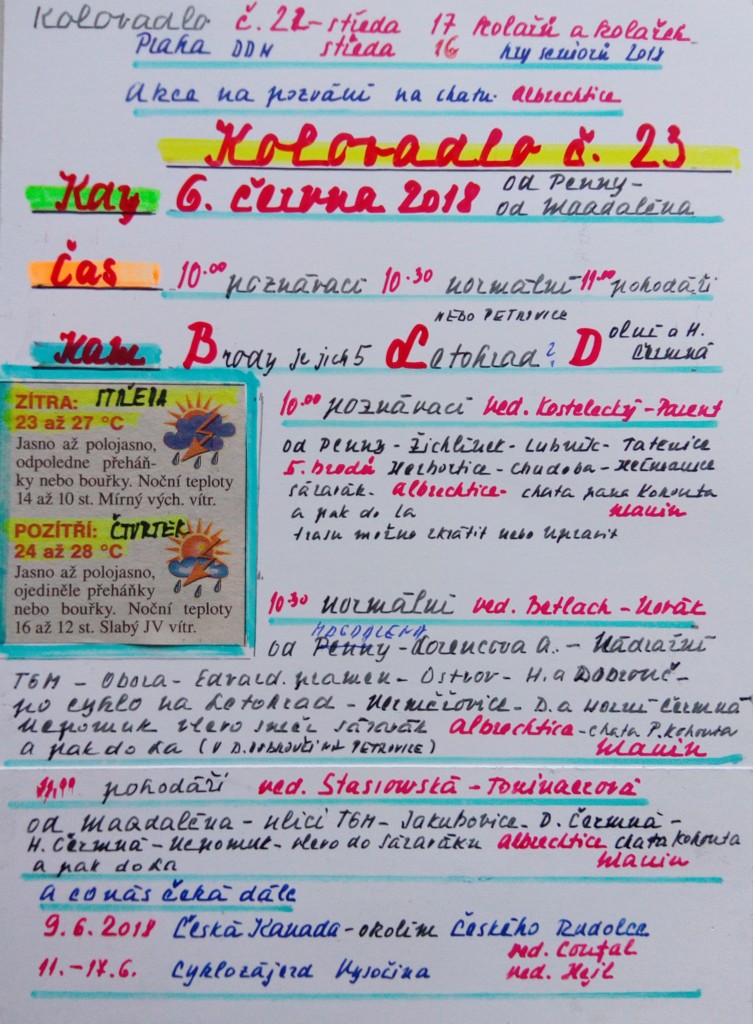 Kolovadlo č. 22 - středa 17 kolařů a kolařek
Praha DDM středa 16 hry seniorů 2018
Akce na pozvání na chatu Albrechtice
Kolovadlo č. 23
Kdy 6. června 2018 od Penny -
od Magdaléna
Čas 10.00 poznávací 10.30 normální 11.00 pohodáři
NEBO PETROVICE
Kam Brody jejich 5 Letohrad ? Dolní a H.
Čermná
ZÍTRA: STŘEDA
23 až 27 °C
Jasno až polojasno,
odpoledne přeháň-
ky nebo bouřky. Noční teploty
14 až 10 st. Mírný vých. vítr.
POZÍTŘÍ: ČTVRTEK
24 až 28 °C
Jasno až polojasno,
ojediněle přeháňky
nebo bouřky. Noční teploty
16 až 12 st. Slabý JV vítr.
10.00 poznávací ved. Kostelecký - Parent
od Penny - Žichlínek - Lubník - Tatenice
5. brodů Herbortice - Chudoba - Heřmanice
sázavák - Albrechtice - chata pana Kohouta
a pak do La
trasu možno zkrátit nebo upravit
10.30 normální ved. Betlach - Novák
MAGDALENA
od Penny - Lorencova A. - Nádražní
TGM - Obora - Edvard. pramen - Ostrov - H. a Dobrouč -
po cyklo na Letohrad - Verměřovice - D. a Horní Čermná
Nepomuk vlevo směr sázavák Albrechtice - chata P. Kohouta
a pak do La (V D. DOBROUČI NA PETROVICE)
11.00 pohodáři ved.
od Magdaléna - ulicí TGM - Jakubovice - D. Čermná -
H. Čermná - Nepomuk - vlevo do sázaváku Albrechtice chata Kohouta
a pak do La
A co nás čeká dále
9.6.2018 Česká Kanada - okolím Českého Rudolce
ved. Coufal
11.-17.6. Cyklozájezd Vysočina ved. Hejl